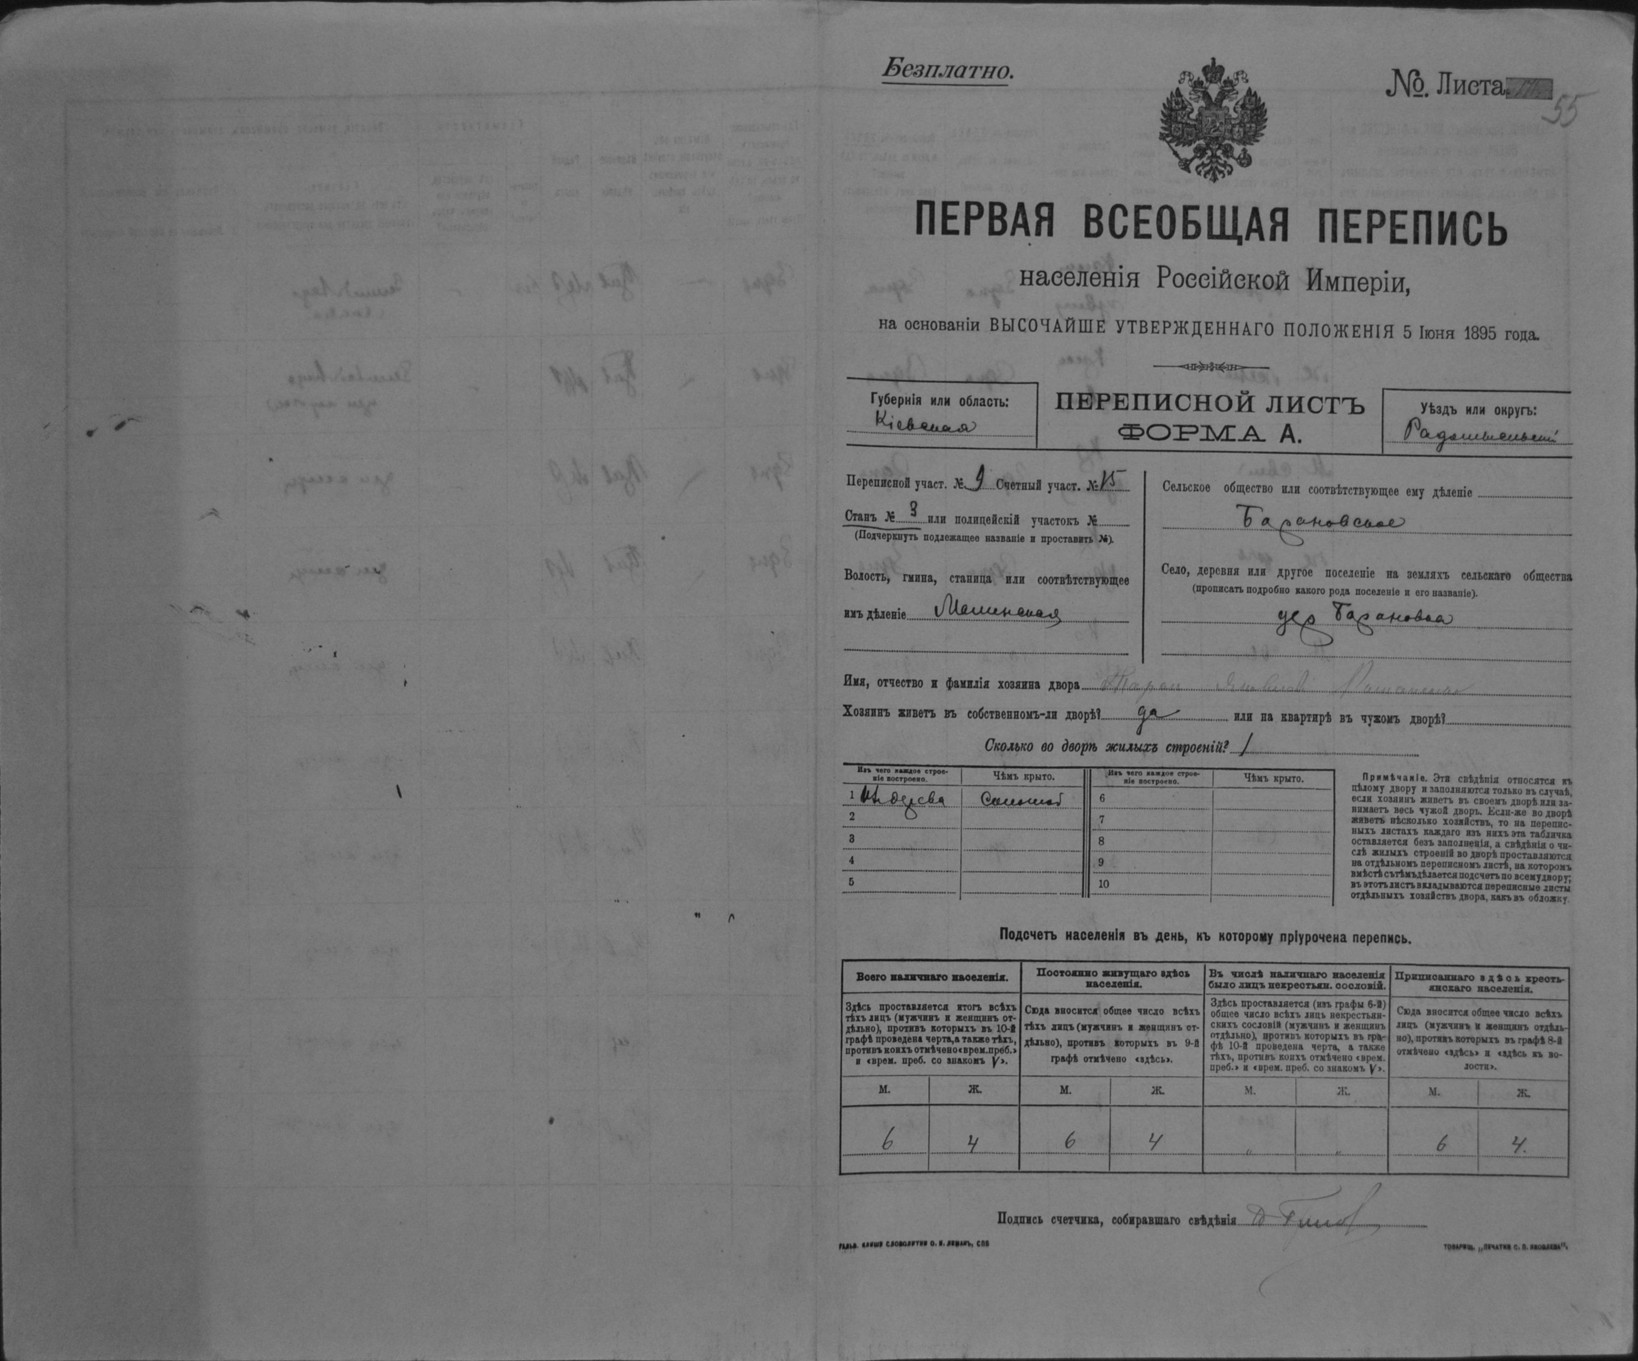 Безплатно.
№. Листа
55
ПЕРВАЯ ВСЕОБЩАЯ ПЕРЕПИСЬ
населенія Россійской Имперіи,
на основаніи ВЫСОЧАЙШЕ УТВЕРЖДЕННАГО ПОЛОЖЕНІЯ 5 Іюня 1895 года.
Губернія или область:
Кіевская
ПЕРЕПИСНОЙ ЛИСТЪ
ФОРМА А.
Уѣздъ или округъ:
Радомысльскій
Переписной участ. № 9 Счетный участ. № 15
Станъ № 3 или полицейскій участокъ №
(Подчеркнуть подлежащее названіе и проставить №).
Волость, гмина, станица или соотвѣтствующее
имъ дѣленіе Малинская
Сельское общество или соотвѣтствующее ему дѣленіе
Барановское
Село, деревня или другое поселеніе на земляхъ сельскаго общества
(прописать подробно какого рода поселеніе и его названіе).
дер Барановка
Имя, отчество и фамилія хозяина двора
Хозяинъ живетъ въ собственномъ-ли дворѣ? да или на квартирѣ въ чужомъ дворѣ?
Сколько во дворѣ жилыхъ строеній? 1
Изъ чего каждое строе-
ніе построено.
Чѣмъ крыто.
Изъ чего каждое строе-
ніе построено.
Чѣмъ крыто.
1 Изъ дерева Соломой 6
2 7
3 8
4 9
5 10
Примѣчаніе. Эти свѣдѣнія относятся къ
цѣлому двору и заполняются только въ случаѣ,
если хозяинъ живетъ въ своемъ дворѣ или за-
нимаетъ весь чужой дворъ. Если-же во дворѣ
живетъ нѣсколько хозяйствъ, то на перепис-
ныхъ листахъ каждаго изъ нихъ эта табличка
оставляется безъ заполненія, а свѣдѣнія о чи-
слѣ жилыхъ строеній во дворѣ проставляются
на отдѣльномъ переписномъ листѣ, на которомъ
вмѣстѣ съ тѣмъ дѣлается подсчетъ по всему двору;
въ этотъ листъ вкладываются переписные листы
отдѣльныхъ хозяйствъ двора, какъ въ обложку.
Подсчетъ населенія въ день, къ которому пріурочена перепись.
Всего наличнаго населенія.
Здѣсь проставляется итогъ всѣхъ
тѣхъ лицъ (мужчинъ и женщинъ от-
дѣльно), противъ которыхъ въ 10-й
графѣ проведена черта, а также тѣхъ,
противъ коихъ отмѣчено «врем. преб.»
и «врем. преб. со знакомъ V».
Постоянно живущаго здѣсь
населенія.
Сюда вносится общее число всѣхъ
тѣхъ лицъ (мужчинъ и женщинъ от-
дѣльно), противъ которыхъ въ 9-й
графѣ отмѣчено «здѣсь».
Въ числѣ наличнаго населенія
было лицъ некрестьян. сословій.
Здѣсь проставляется (изъ графы 6-й)
общее число всѣхъ лицъ некрестьян-
скихъ сословій (мужчинъ и женщинъ
отдѣльно), противъ которыхъ въ гра-
фѣ 10-й проведена черта, а также
тѣхъ, противъ коихъ отмѣчено «врем.
преб.» и «врем. преб. со знакомъ V».
Приписаннаго здѣсь кресть-
янскаго населенія.
Сюда вносится общее число всѣхъ
лицъ (мужчинъ и женщинъ отдѣль-
но), противъ которыхъ въ графѣ 8-й
отмѣчено «здѣсь» и «здѣсь въ во-
лости».
М. Ж. М. Ж. М. Ж. М. Ж.
6 4 6 4 " " 6 4.
Подпись счетчика, собиравшаго свѣдѣнія
ГАЛЬВ. КЛИШЕ СЛОВОЛИТНИ О. И. ЛЕМАНЪ, СПБ
ТОВАРИЩ. „ПЕЧАТНЯ С. П. ЯКОВЛЕВА".